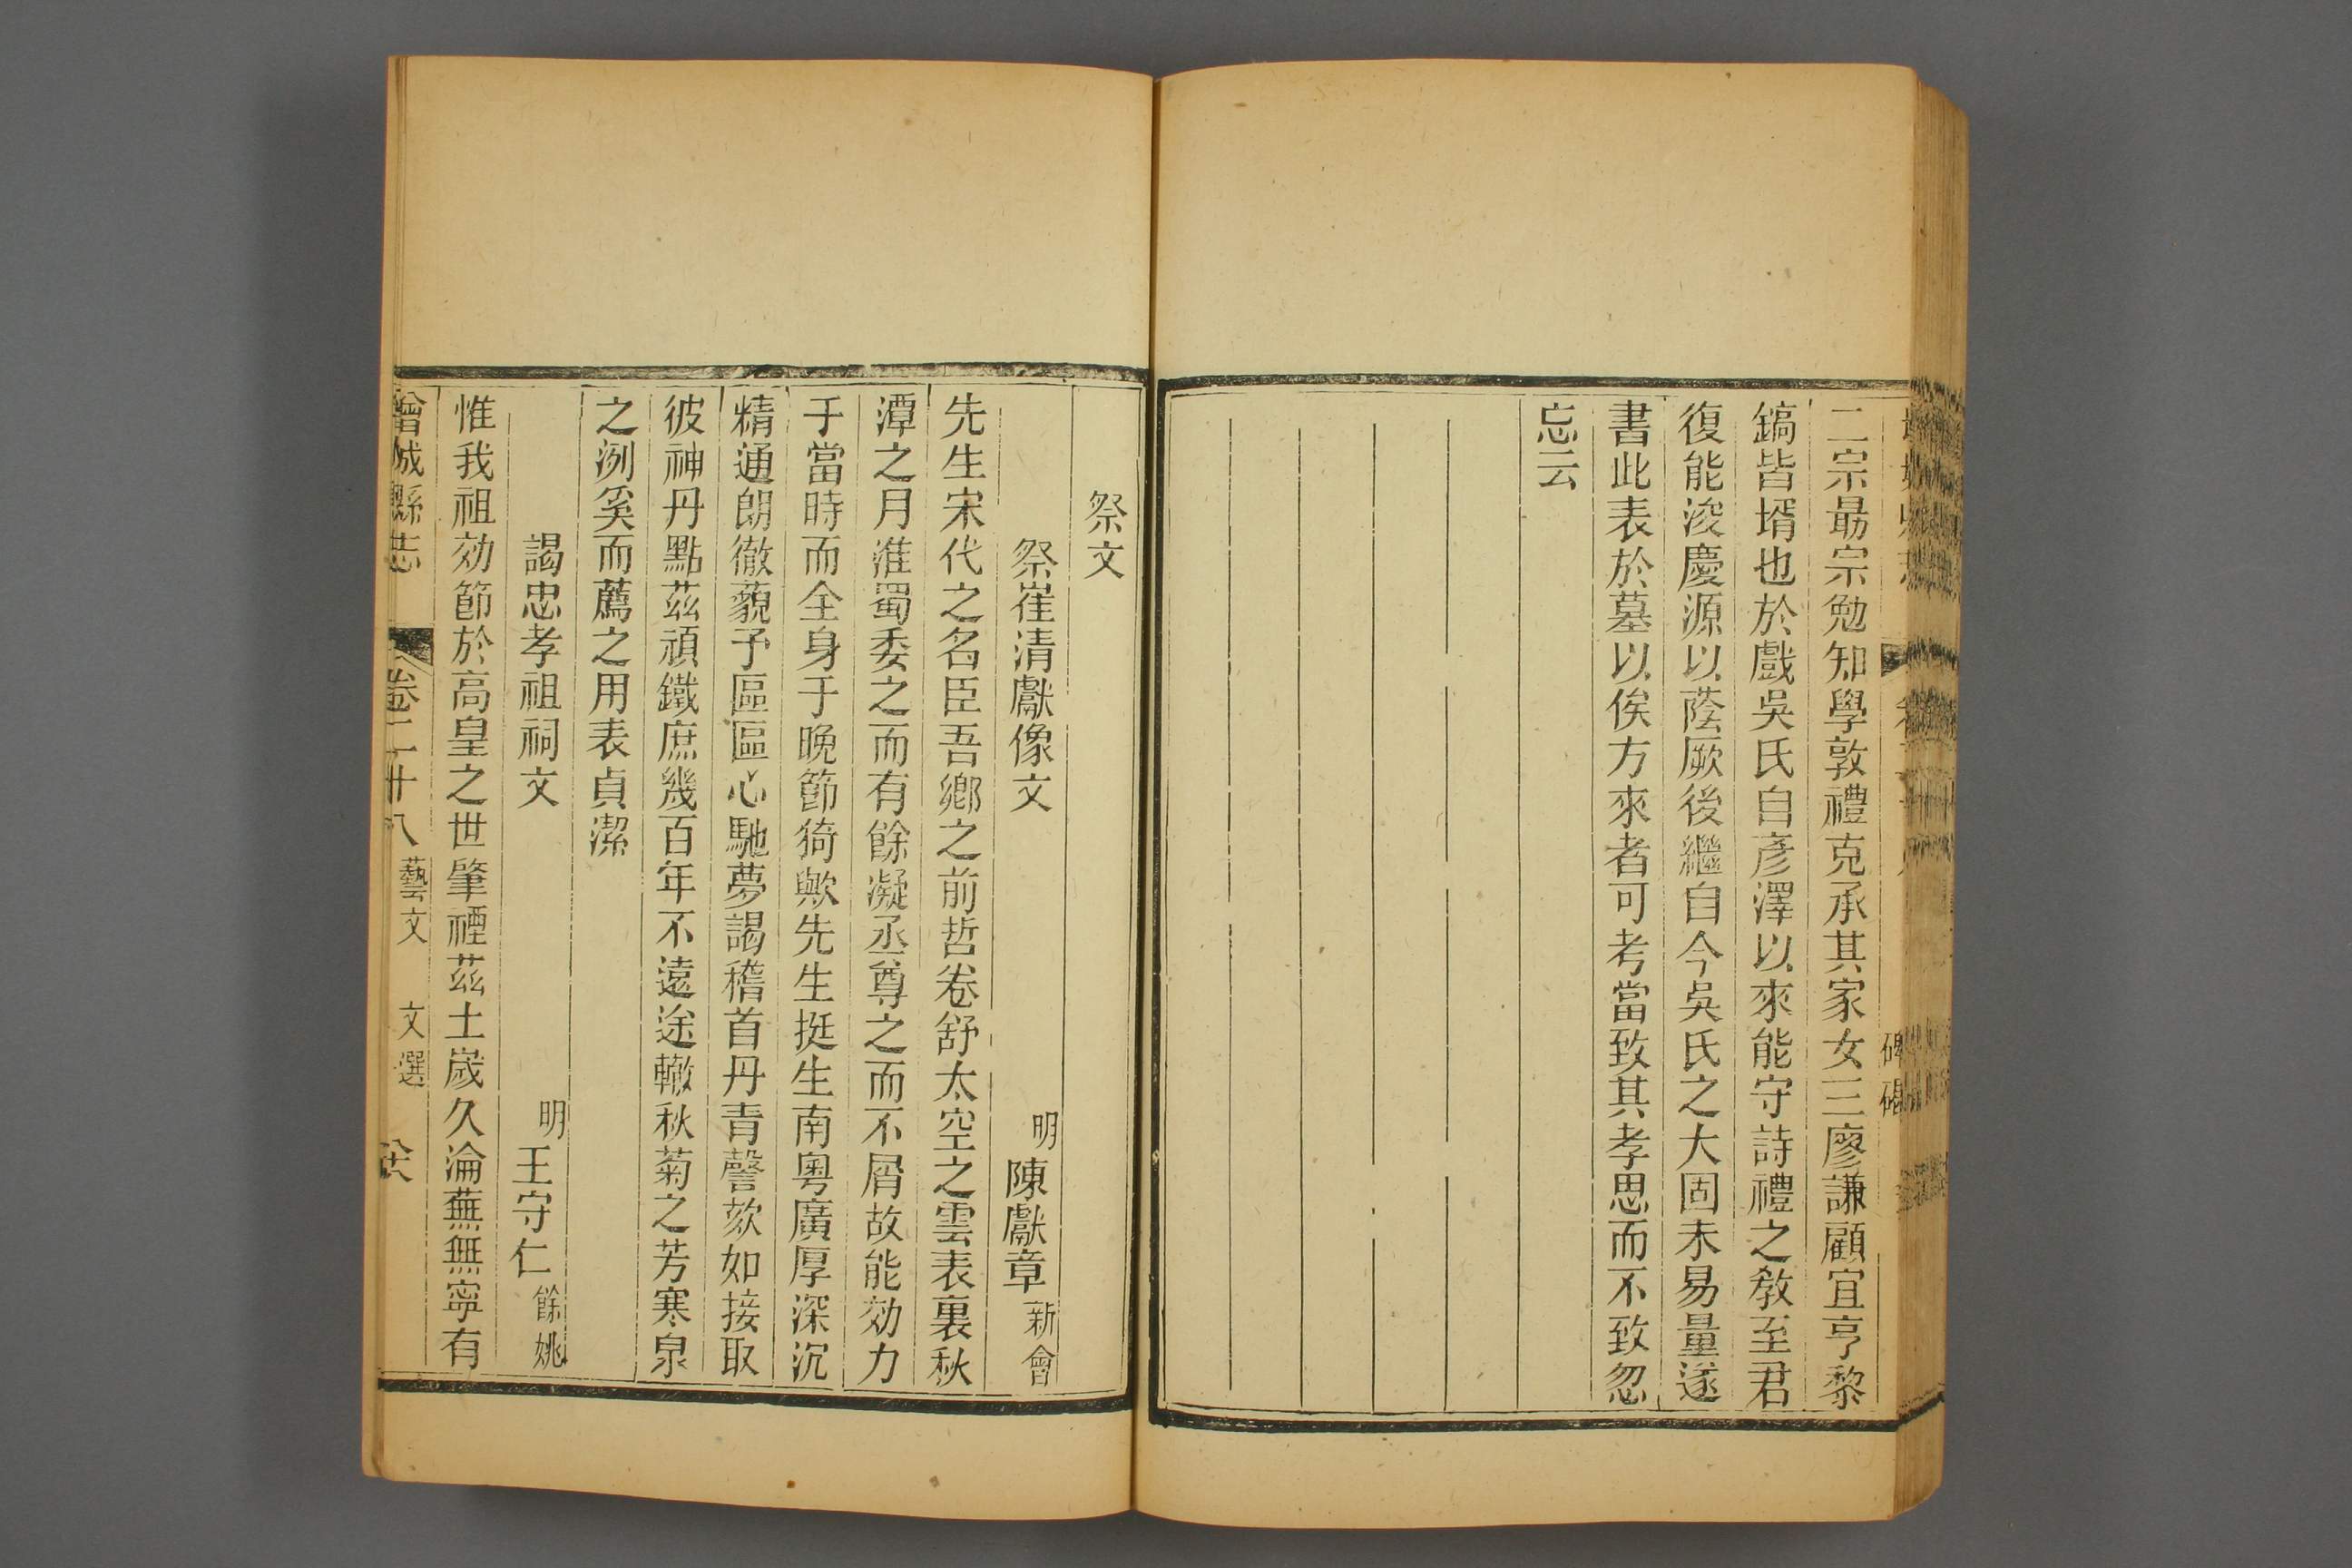 二宗最宗勉知學敦禮克承其家女三廖謙顧宜亨黎
鎬皆壻也於戲吳氏自彥澤以來能守詩禮之教至君
復能浚慶源以蔭厥後繼自今吳氏之大固未易量遂
書此表於墓以俟方來者可考當致其孝思而不致忽
忘云
祭文
祭崔清獻像文 明陳獻章新會
先生宋代之名臣吾鄉之前哲卷舒太空之雲表裏秋
潭之月淮蜀委之而有餘凝丞尊之而不屑故能効力
于當時而全身于晚節猗歟先生挺生南粵廣厚深沉
精通朗徹藐予區區心馳夢謁稽首丹青謦欬如接取
彼神丹點茲頑鐵庶幾百年不遠途轍秋菊之芳寒泉
之洌奚而薦之用表貞潔
謁忠孝祖祠文 明王守仁餘姚
惟我祖効節於高皇之世肇禋茲土歲久淪蕪無寧有
增城縣志 卷二十八 藝文 文選